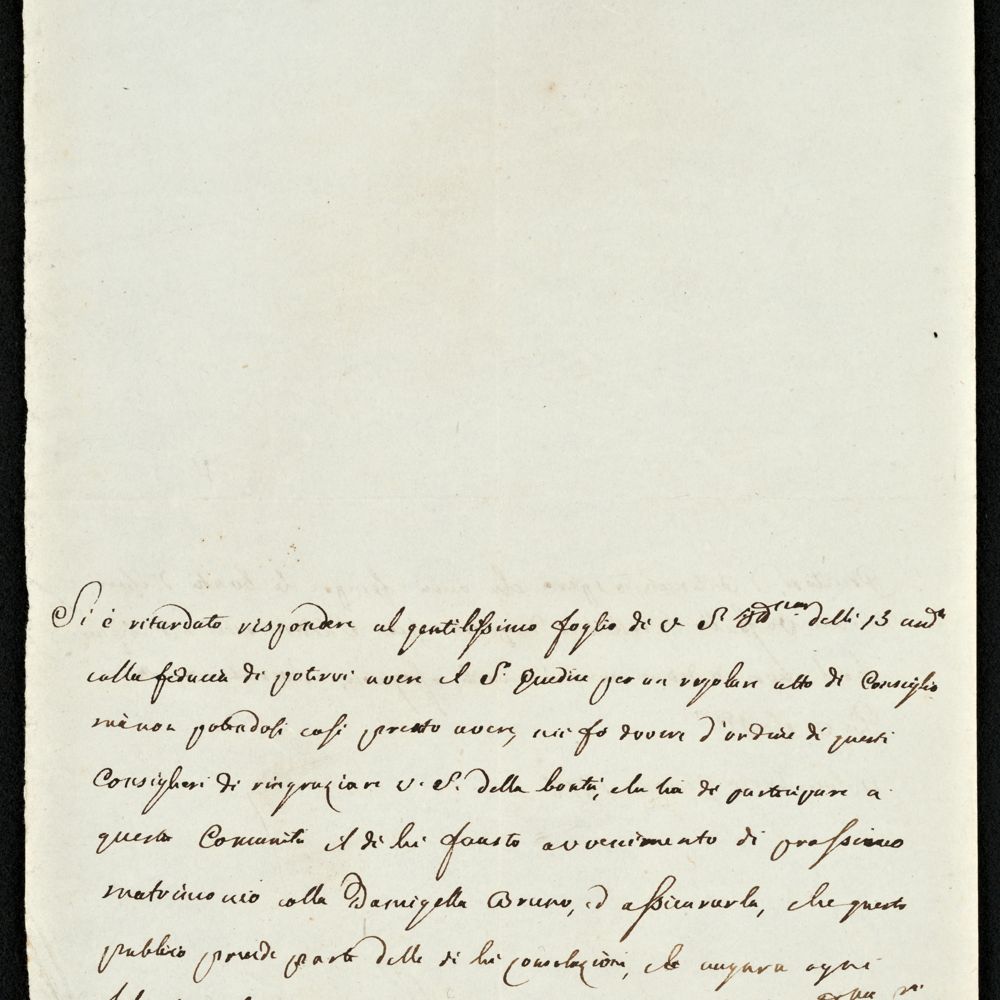 Si è ritardato rispondere al gentilissimo foglio di V. S. delli 13 and.e
colla fiducia di potervi avere il S.r Giudice per un regolare atto di Consiglio
mà non potendosi così presto avere, mi fo dovere d'ordine di questi
Consiglieri di ringraziare V. S. della bontà, che ha di participare a
questa Comunità il di lei fausto avvenimento di prossimo
matrimonio colla Damigella Bruno, ed assicurarla, che questo
pubblico prende parte delle di lei consolazioni, che augura ogni